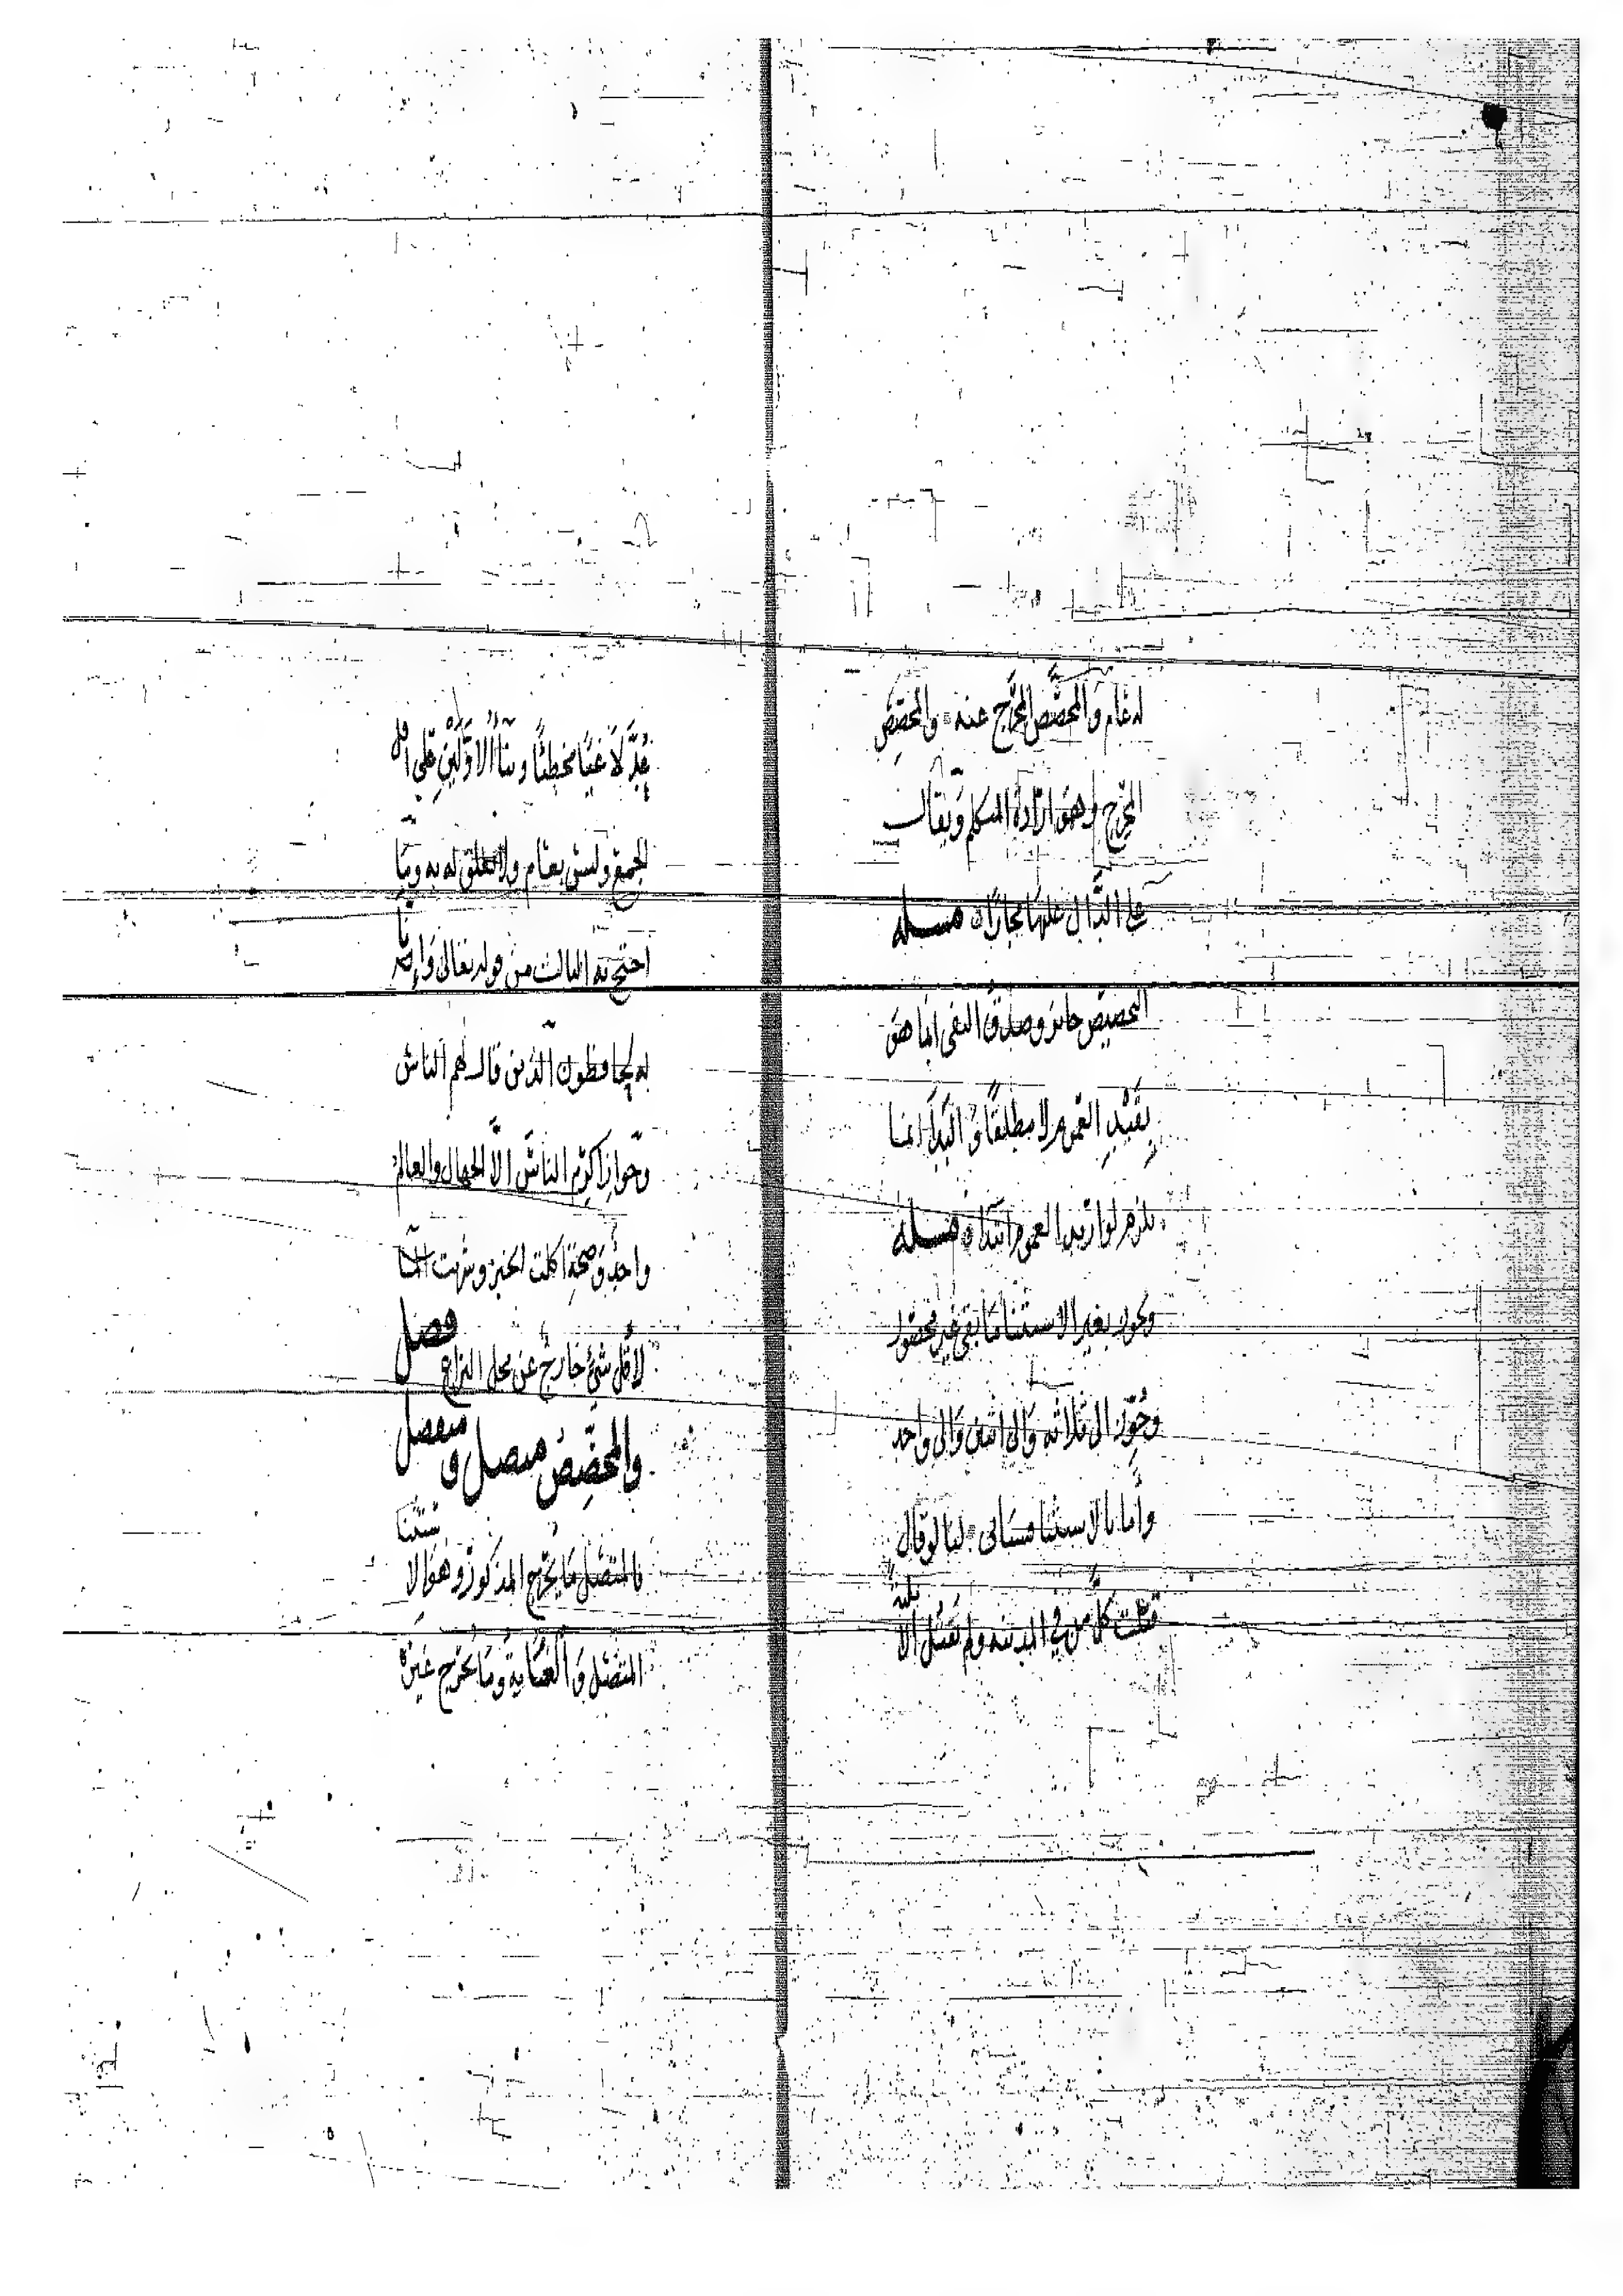 له عام وَالمخصَّص المخرَج عنه والمخصِّصُ
المخرِج وهو ارَادة المتكلم وَيقال
على الدَّال عليها مجازًا مسئله
التخصيص جائز وصدق النفى انما هوَ
بقَيْدِ العموم لا مطلقًا وَ البَدَا انما
يلزم لو اريد العموم ابتدا مسئله
ويجوز بغير الاستثنا مَا بقى غير محصور
وَجُوِّز الى ثلاثه وَالى اثنين وَالى واحد
وأما بالاستثنا فسَياتى لنا لو قال
قتلت كلَّ من في المدينه ولم يَقتُل الا ثلثةً
عُدَّ لَاغيًا مخطئًا وبنآءُ الاوَّلَيْن على اقل
الجمع وليس بعام ولا تعلق له به وَمَا
احتج به الثالث من قوله تعالى وَإِنَّا
له لحافظون الذين قال لهم الناس
وَجَواز اكرم الناس الَّا الجهال والعالم
واحد وَصحَّة اكلت الخبز وشربت المآ
لأقل شيٍ خارج عن محل النزاع فصل
والمخصِّصُ متصل و منفصل
فالمتصل مَا يُخرج المذكور وهو الاستثنا
المتصل وَ الغَايةُ وَمَا يُخرج غيرَه